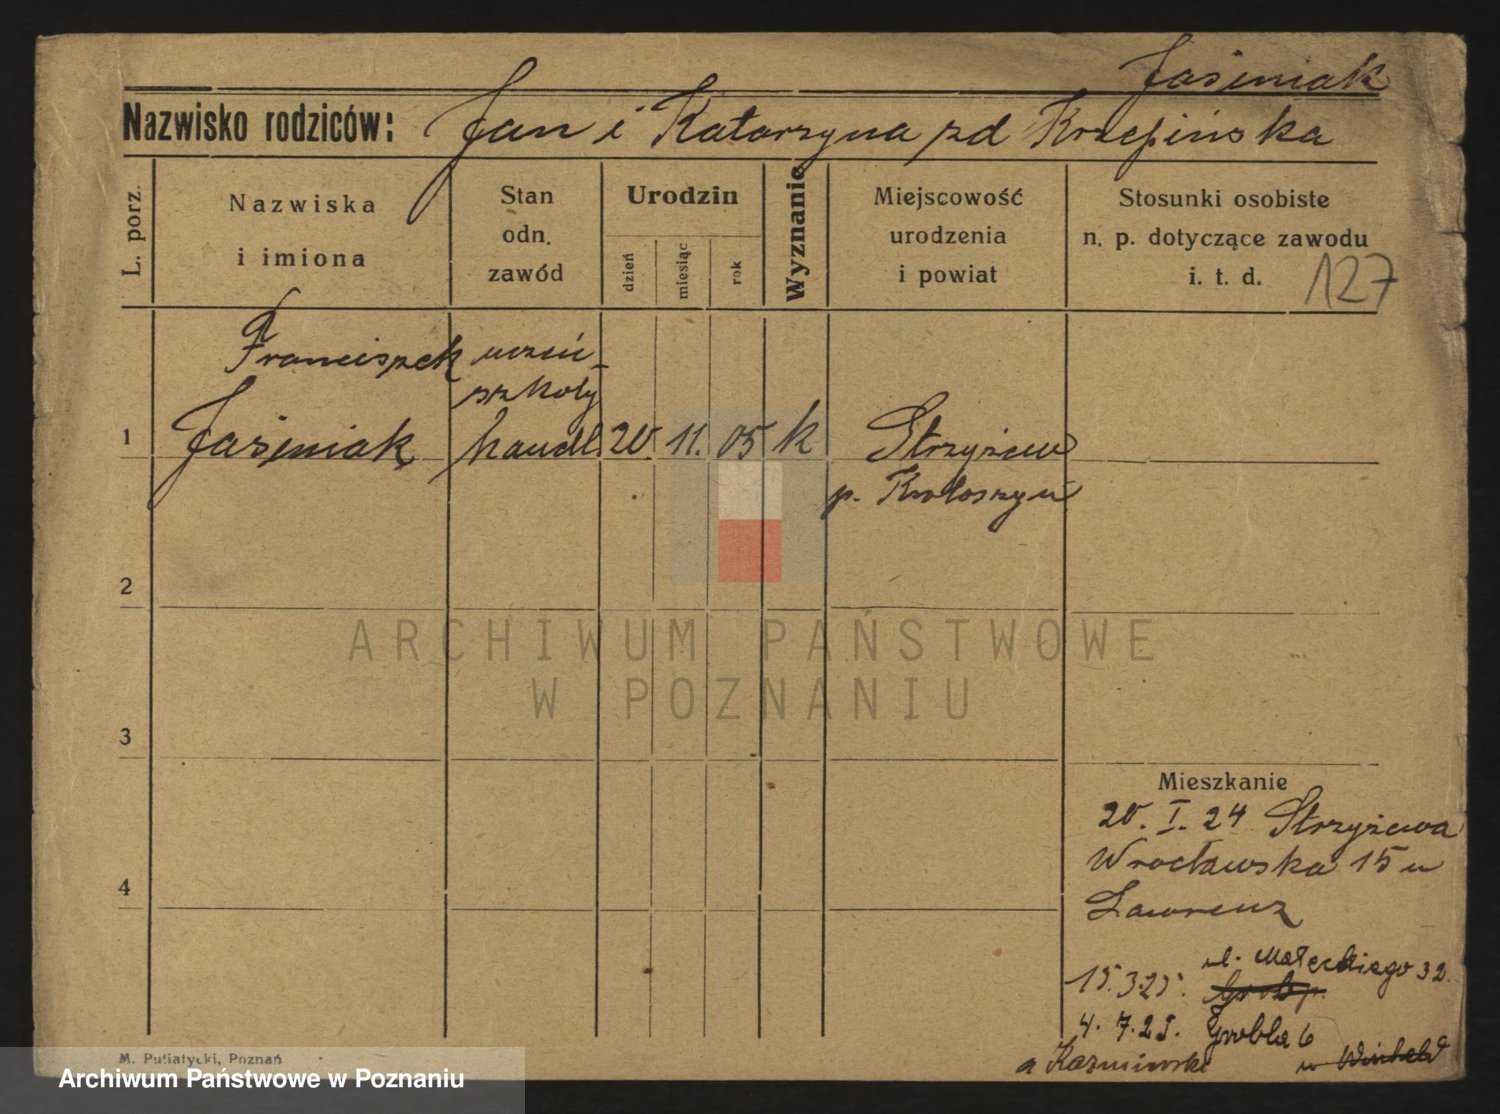 Jaśiniak
Nazwisko rodziców: Jan i Katarzyna zd Krzepińska
L. porz.
Nazwiska
i imiona
Stan
odn.
zawód
Urodzin
dzień
miesiąc
rok
Wyznanie
Miejscowość
urodzenia
i powiat
Stosunki osobiste
n. p. dotyczące zawodu
i. t. d.
127
Franciszek uczeń
szkoły
1 Jaśiniak handl. 20. 11. 05 k Strzyżew
p. Krotoszyn
2
ARCHIWUM PAŃSTWOWE
W POZNANIU
3
Mieszkanie
20. I. 24 Strzyżewa
Wrocławska 15 u
4
Lawrenz
ul. Małeckiego 32.
15.3.25.
4. 7. 25. Grobla 6
a Kaźmierski
M. Putiatycki, Poznań
Archiwum Państwowe w Poznaniu